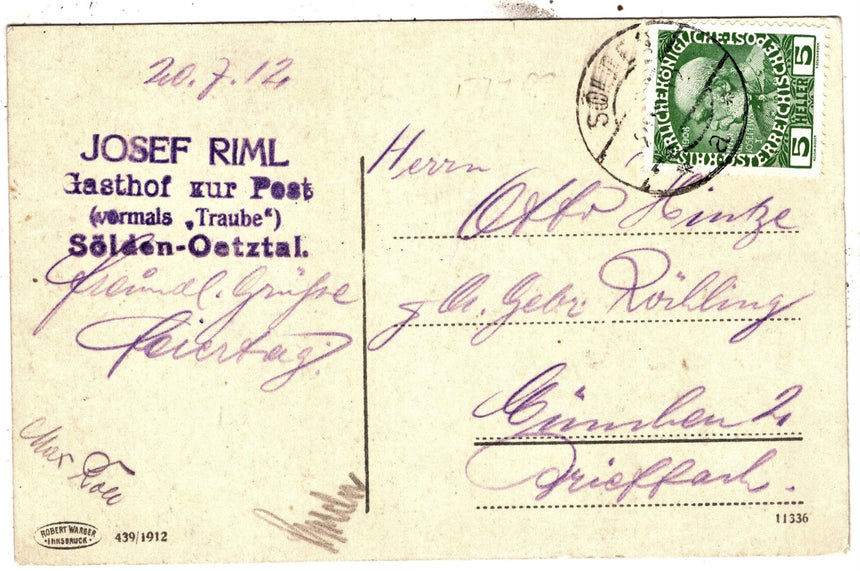 20.7.12
JOSEF RIML
Gasthof zur Post
(vormals „Traube“)
Sölden-Oetztal.
freundl. Grüsse
Feiertag.
Max
ROBERT WARGER
INNSBRUCK
439/1912
SÖLDEN
a
KAISERLICHE KÖNIGLICHE ÖSTERREICHISCHE POST
5
HELLER
5
1908
Herrn
Otto Hintze
Gebr. Röchling
München 2
Brieffach.
11336